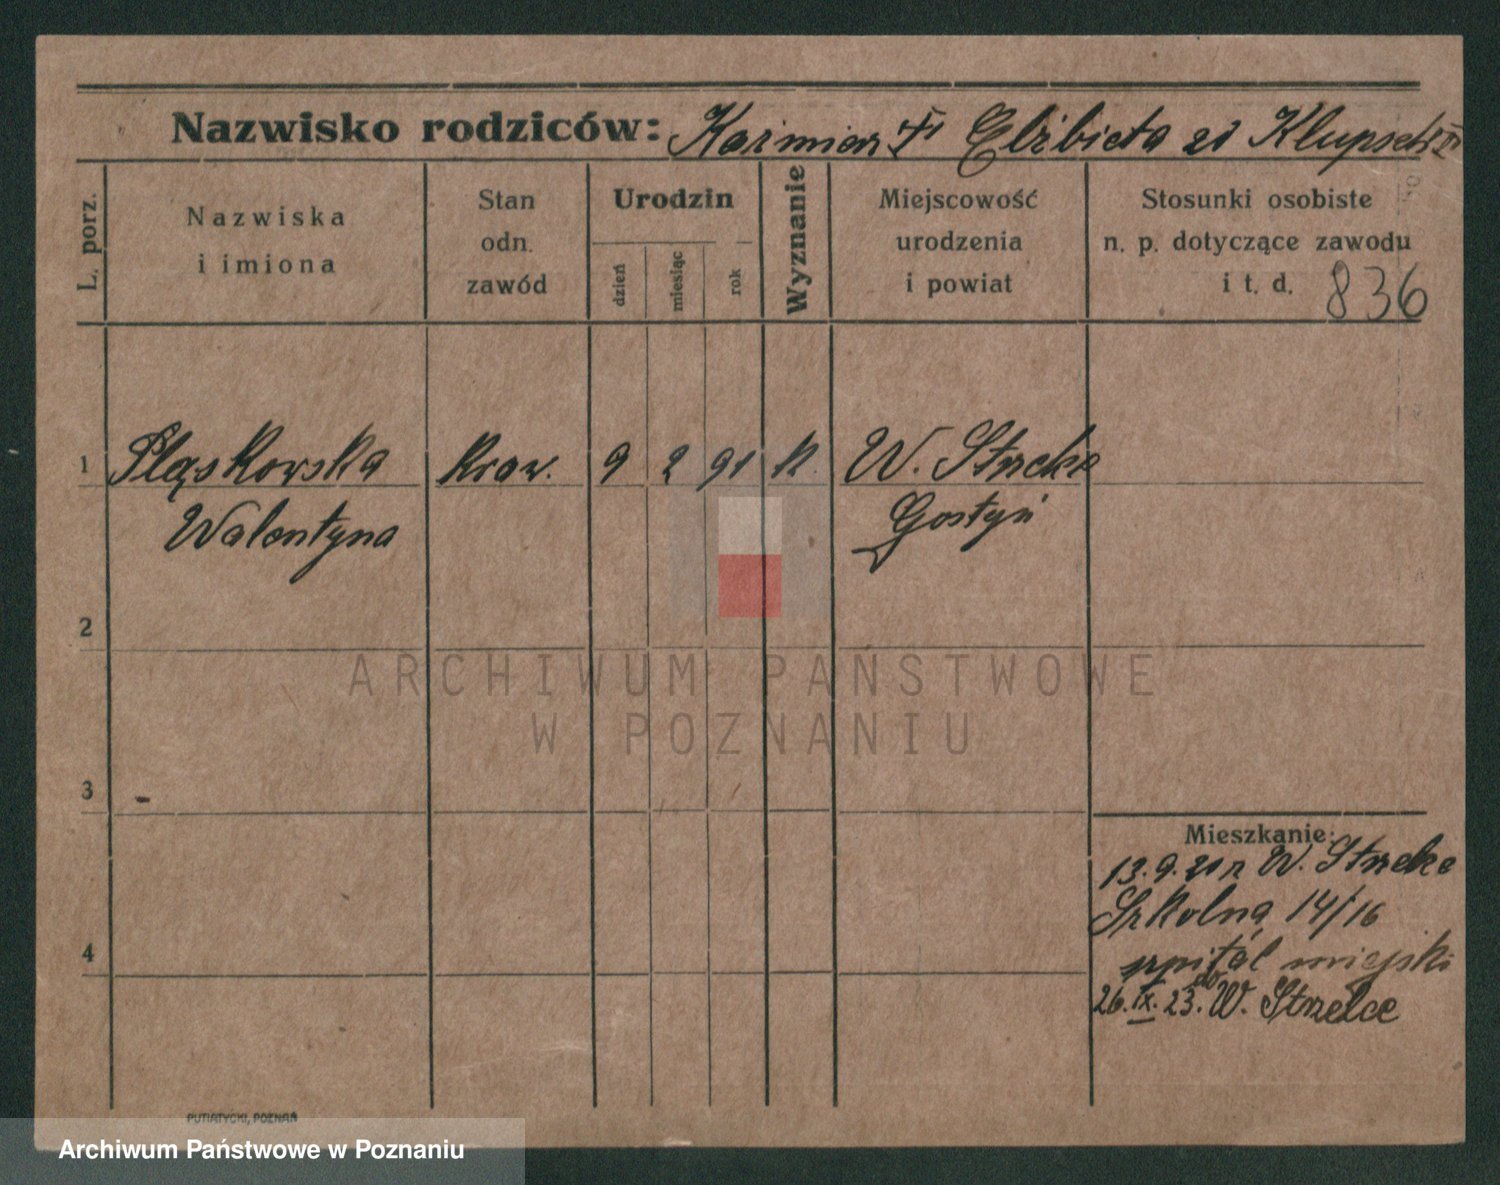 Nazwisko rodziców: Kaźmierz Elżbieta zd Klupsch
L. porz.
Nazwiska
i imiona
Stan
odn.
zawód
Urodzin
dzień
miesiąc
rok
Wyznanie
Miejscowość
urodzenia
i powiat
Stosunki osobiste
n. p. dotyczące zawodu
i t. d. 836
1 Pląskowska Kraw. 9 2 91 k. W. Strzelce
Walentyna Gostyń
2
ARCHIWUM PAŃSTWOWE
W POZNANIU
3
Mieszkanie:
13. 9. 21 z W. Strzelce
Szkolna 14/16
szpital miejski
4
26. IX. 23. do W. Strzelce
PUTIATYCKI, POZNAŃ
Archiwum Państwowe w Poznaniu